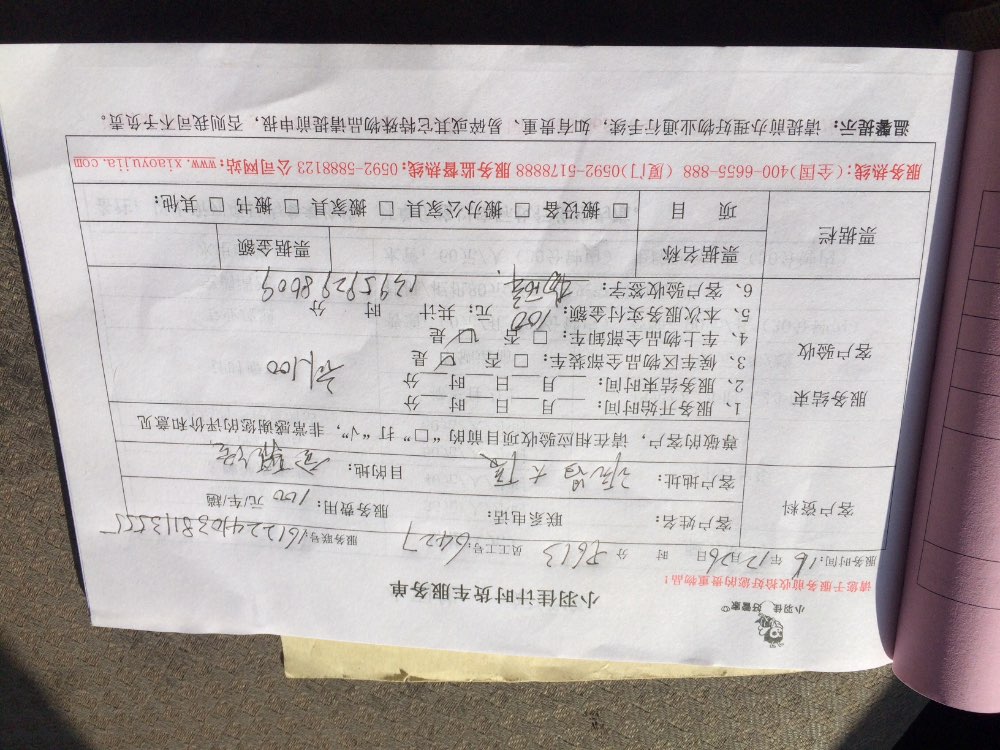 小羽佳 好管家
小羽佳计时货车服务单
请您于服务前收拾好您的贵重物品！
服务时间：16 年 12 月 26 日 时 分 员工工号：6427 服务联号：
客户资料
客户姓名： 联系电话： 服务费用：100 元/车/趟
客户地址： 大厦 目的地：
尊敬的客户，请在相应验收项目前的“□”打“√”，非常感谢您的评价和意见
服务结束
客户验收
1、服务开始时间：____月____日____时____分
2、服务结束时间：____月____日____时____分
3、候车区物品全部装车：□ 否 ☑ 是
4、车上物品全部卸车：□ 否 ☑ 是
5、本次服务交付金额：100 元：共计 时 分
6、客户验收签字： 13959298009
票据栏
票据名称 票据金额
项 目 □ 搬设备 □ 搬办公家具 □ 搬家具 □ 搬书 □ 其他：
服务热线：(全国)400-6655-888 (厦门)0592-5178888 服务监督热线：0592-5888123 公司网站：www.xiaoyujia.com
温馨提示：请提前办理好物业通行手续，如有贵重、易碎或其它特殊物品请提前申报，否则我司不予负责。